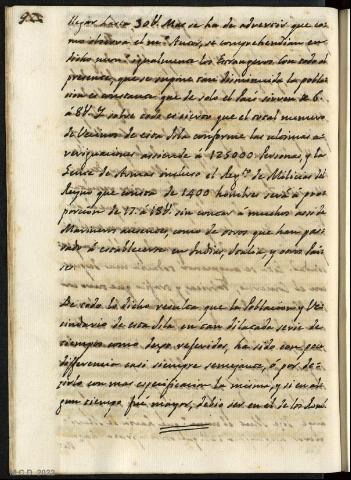 llegar hasta 30U. Mas se ha de advertir que co=
mo observa el mismo Autor, se comprehendian en
dicho num.o igualmente los Extrangeros. Con todo al
presente, que se supone tan disminuida la pobla=
cion es constante que de solo el Pais sirven de 6.
á 8U. Y sobre todo es cierto que el total numero
de Vecinos de esta Isla conforme las ultimas a=
veriguaciones asciende á 125000 Personas, y la
Gente de Armas incluso el Reg.to de Milicias del
Reyno que consta de 1400 hombres será á pro=
porcion de 17. á 18U. sin contar á muchos assi de
Marineros ausentes, como de otros que han pas=
sado á establecerse en Indias, Italia, y otros Pai=
ses.
De todo lo dicho resulta que la Poblacion y Ve=
cindario de esta Isla en tan dilatada serie de
tiempos como dexo referidos, ha sido con poca
differencia casi siempre semejante, ó por de=
cirlo con mas especificacion la misma, y si en al=
gun tiempo fué mayor, debió ser en el de los
M.C.D. 2022